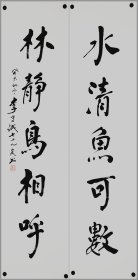 水清魚可數
林靜鳥相呼